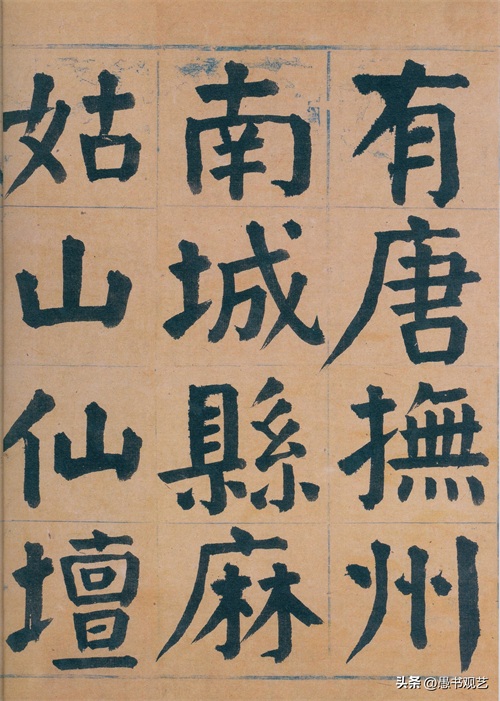 有唐撫州
南城縣麻
姑山仙壇
头条 @愚书观艺